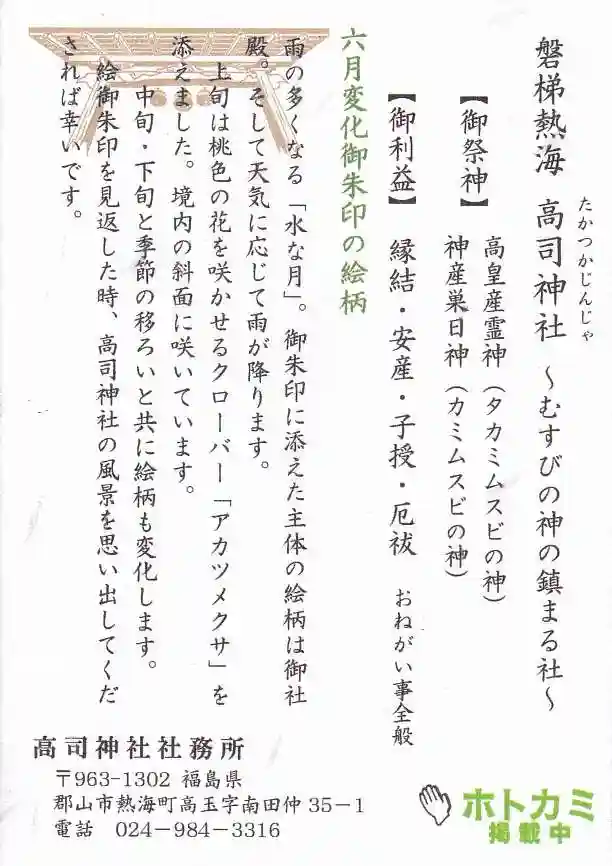 磐梯熱海 高司神社 ～むすびの神の鎮まる社～
たかつかじんじゃ
【御祭神】 高皇産霊神(タカミムスビの神)
神産巣日神(カミムスビの神)
【御利益】 縁結・安産・子授・厄祓 おねがい事全般
六月変化御朱印の絵柄
雨の多くなる「水な月」。御朱印に添えた主体の絵柄は御社
殿。そして天気に応じて雨が降ります。
上旬は桃色の花を咲かせるクローバー「アカツメクサ」を
添えました。境内の斜面に咲いています。
中旬・下旬と季節の移ろいと共に絵柄も変化します。
絵御朱印を見返した時、高司神社の風景を思い出してくだ
されば幸いです。
高司神社社務所
〒963-1302 福島県
郡山市熱海町高玉字南田仲35-1
電話 024-984-3316
ホトカミ
掲載中